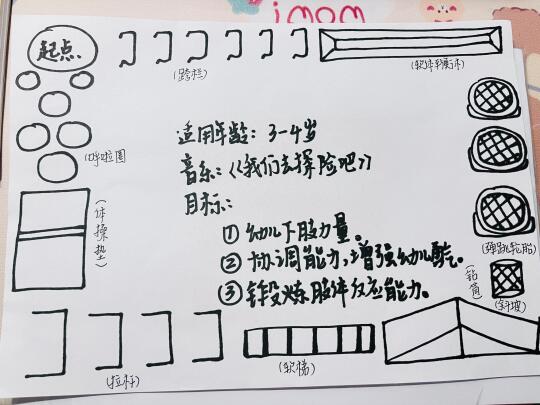 imom
起点
(跨栏)
(软体平衡木)
(呼啦圈
适用年龄：3-4岁
音乐：《我们去探险吧》
目标：
① 幼儿下肢力量。
② 协调能力，增强幼儿
③ 锻炼肢体反应能力。
(体操垫)
(弹跳轮胎)
(钻筒)
(斜坡)
(拉杆)
(软梯)